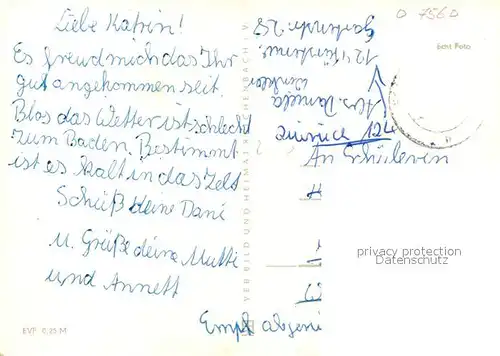 Liebe Katrin!
Es freud mich das Ihr
gut angekommen seit.
Blos das Wetter ist schlecht
zum Baden. Bestimmt
ist es kalt in das Zelt
Schüß deine Dani
u. Grüße deine Mutti
und Annett
Abs. Daniela
Gartenstr. 28
zurück
An Schülerin
Empf
VEB BILD UND HEIMAT REICHENBACH I. V.
Echt Foto
EVP 0,25 M
privacy protection
Datenschutz